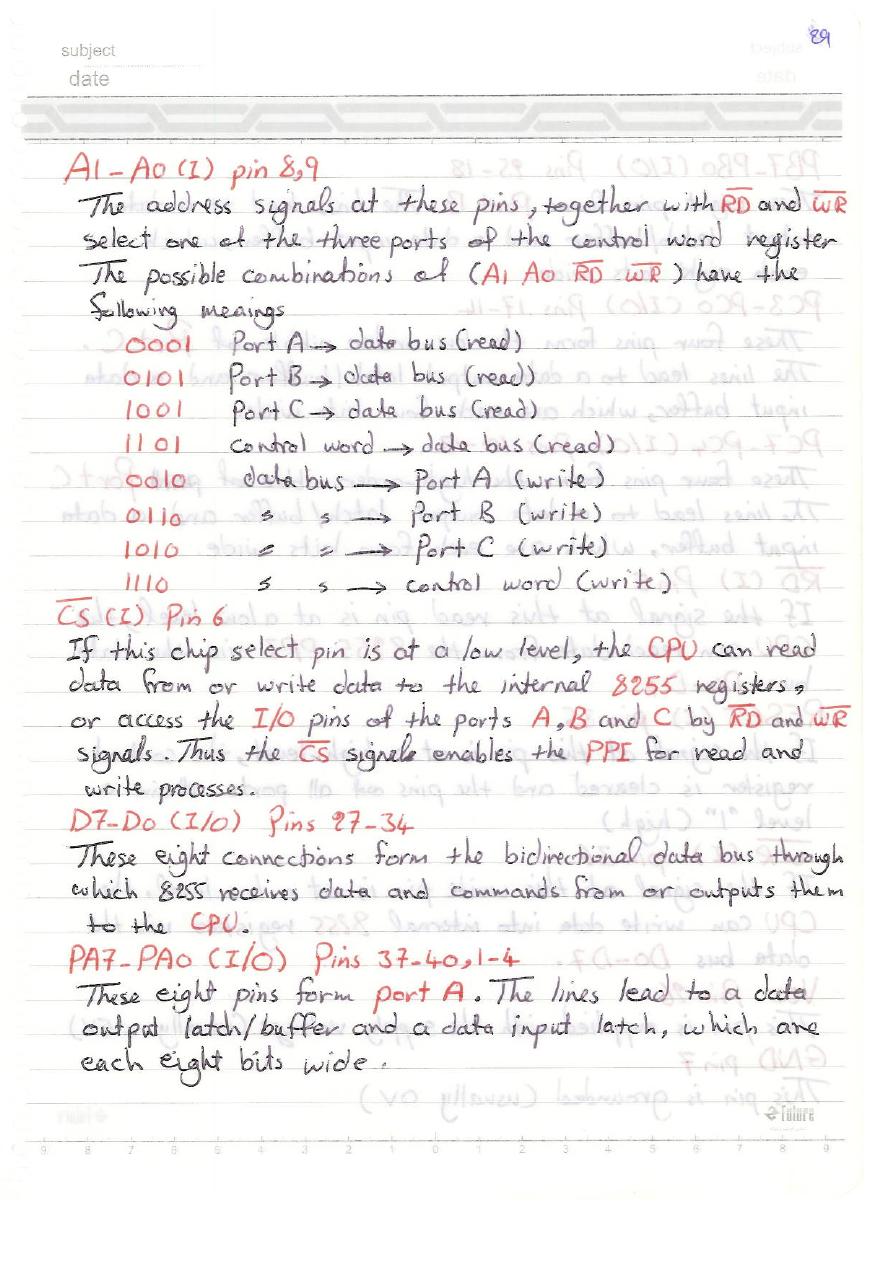 29
subject
date
A1-A0 (I) pin 8,9
The address signals at these pins, together with R̅D̅ and W̅R̅
select one of the three ports of the control word register
The possible combinations of (A1 A0 R̅D̅ W̅R̅) have the
following meaings
0001 Port A → data bus (read)
0101 Port B → data bus (read)
1001 Port C → data bus (read)
1101 control word → data bus (read)
0010 data bus → Port A (write)
0110 〃 〃 → Port B (write)
1010 〃 〃 → Port C (write)
1110 〃 〃 → control word (write)
C̅S̅ (I) Pin 6
If this chip select pin is at a low level, the CPU can read
data from or write data to the internal 8255 registers,
or access the I/O pins of the ports A, B and C by R̅D̅ and W̅R̅
signals. Thus the C̅S̅ signals enables the PPI for read and
write processes.
D7-D0 (I/O) Pins 27-34
These eight connections form the bidirectional data bus through
which 8255 receives data and commands from or outputs them
to the CPU.
PA7-PA0 (I/O) Pins 37-40, 1-4
These eight pins form port A. The lines lead to a data
output latch/buffer and a data input latch, which are
each eight bits wide.
Future
9 8 7 6 5 4 3 2 1 0 1 2 3 4 5 6 7 8 9